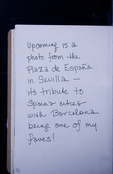 Upcoming is a
photo from the
Plaza de España
in Sevilla —
its tribute to
Spain's cities
with Barcelona
being one of my
faves!